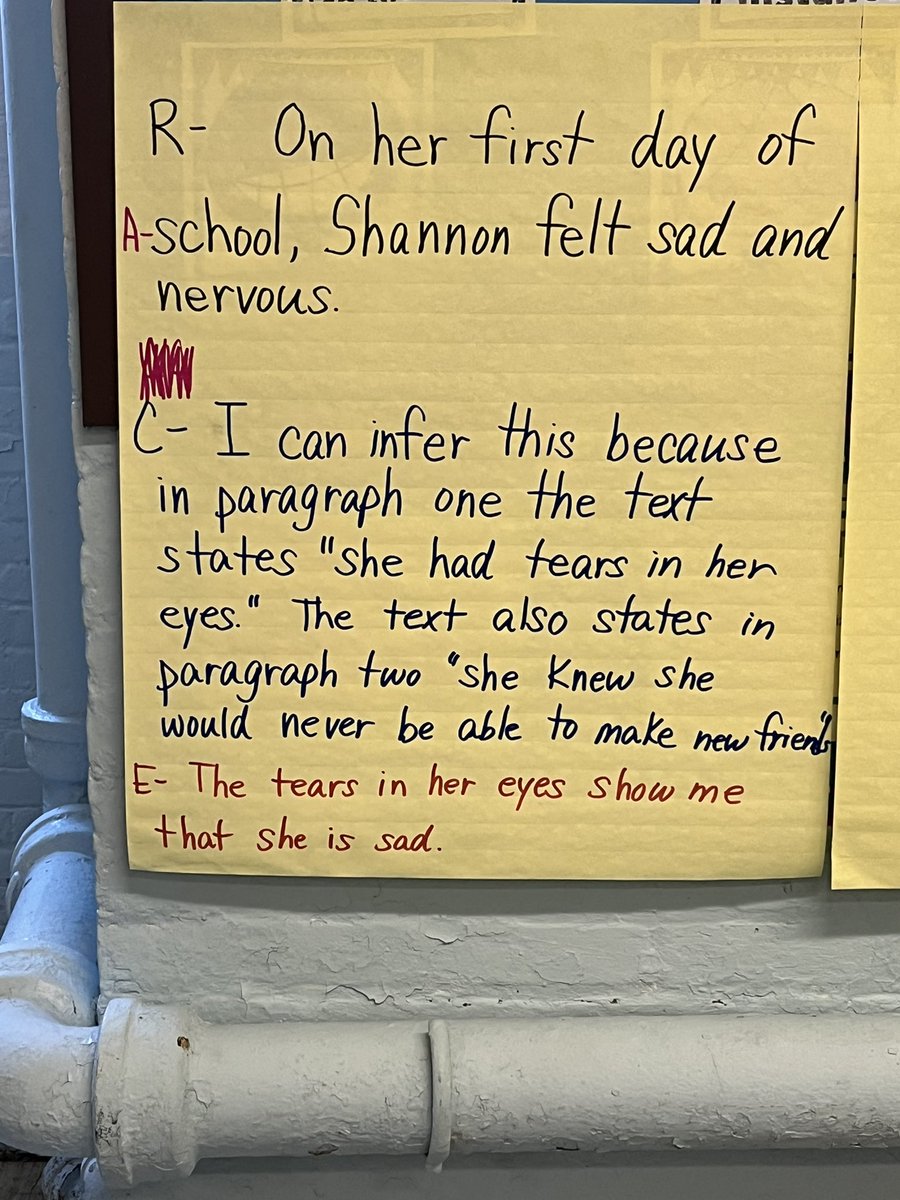 R- On her first day of
A-school, Shannon felt sad and
nervous.
C- I can infer this because
in paragraph one the text
states "she had tears in her
eyes." The text also states in
paragraph two "she knew she
would never be able to make new friends"
E- The tears in her eyes show me
that she is sad.